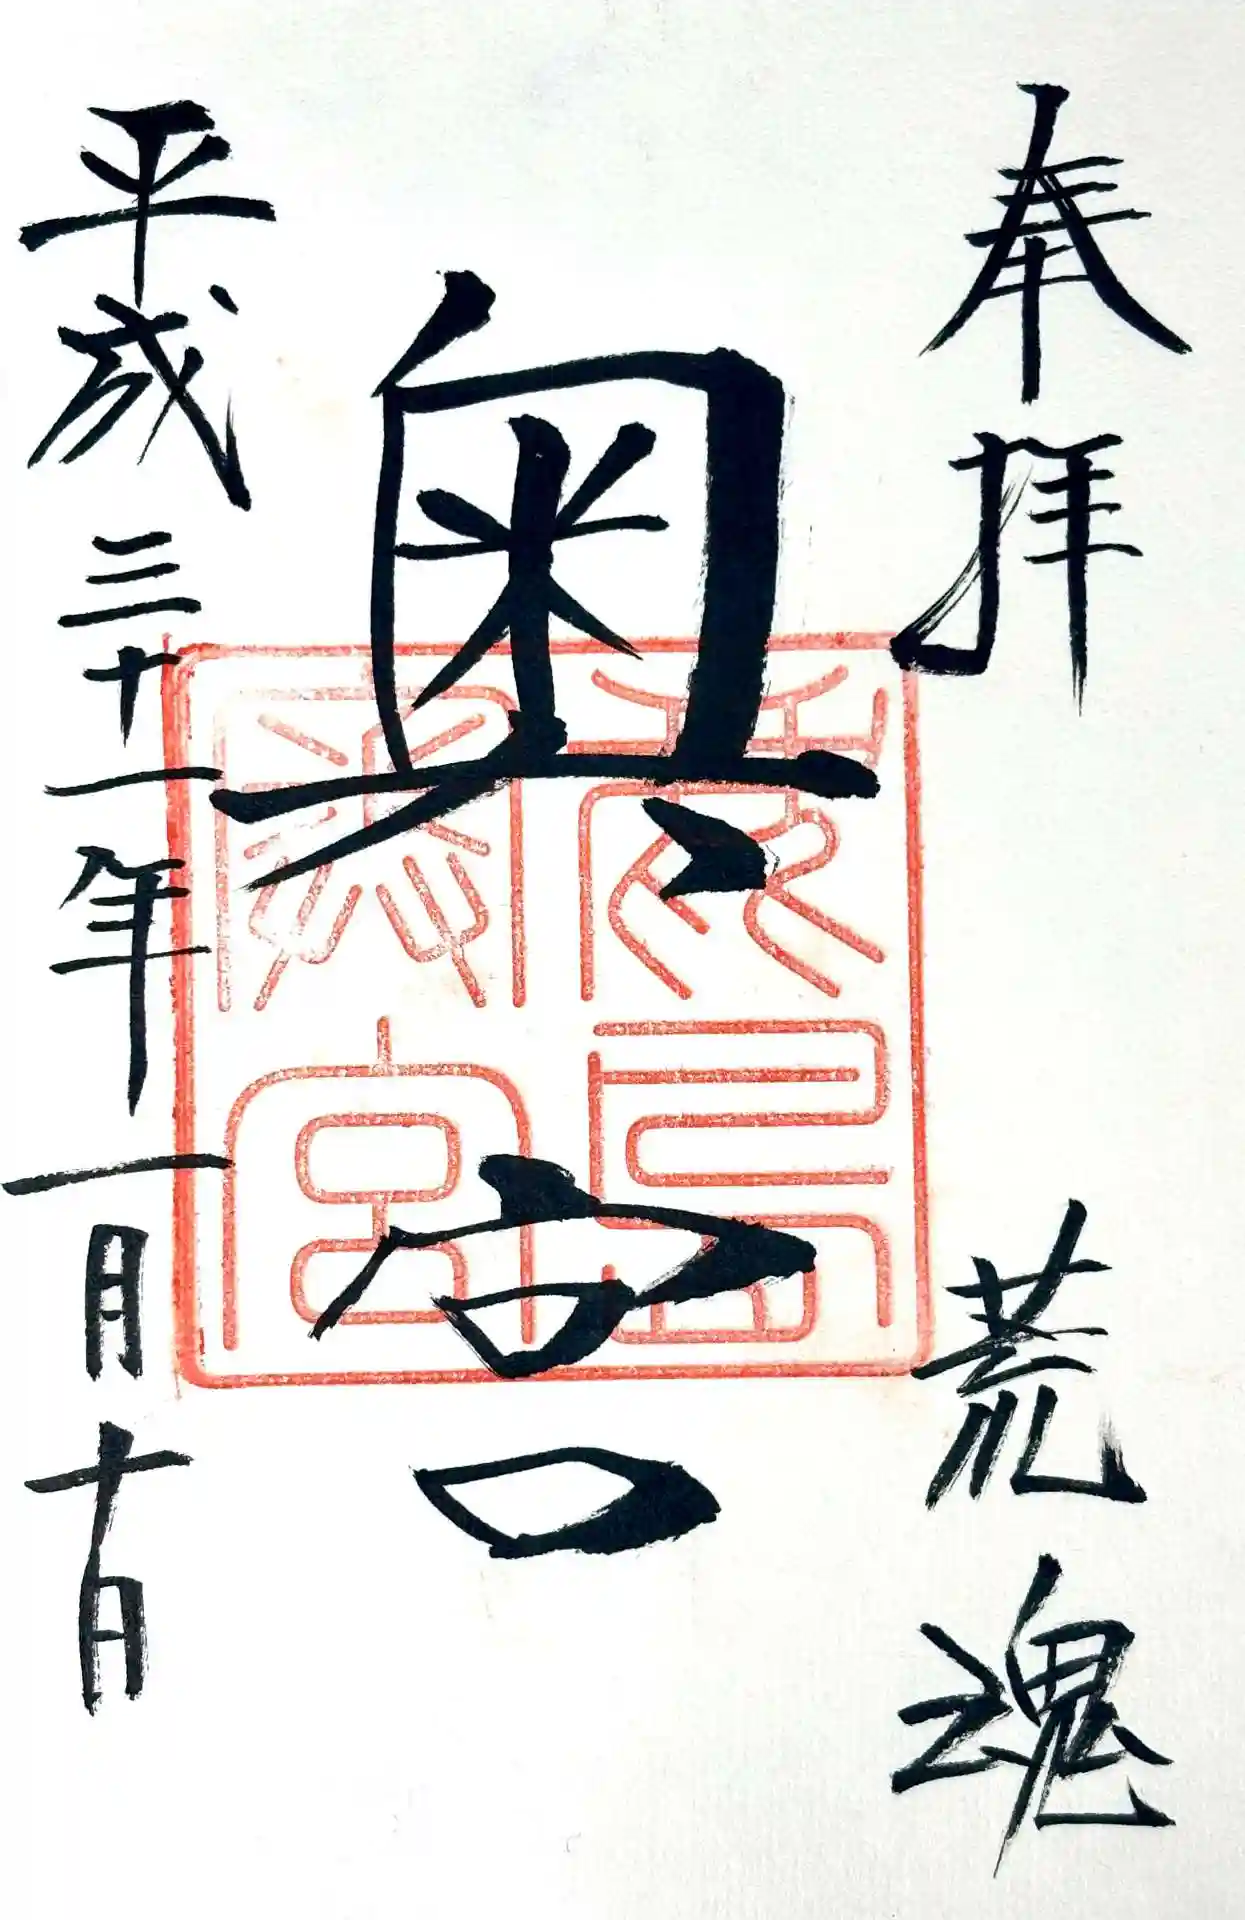 奉拝　荒魂
奥宮
鹿島
奥宮
平成三十一年一月十日